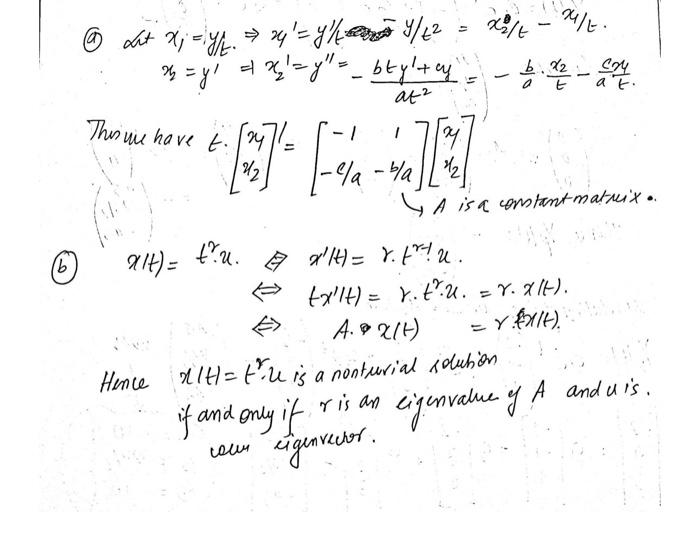 (a) Let x₁ = y/t. ⇒ x₁' = y'/t - y/t² = x₂/t - x₁/t.
x₂ = y' ⇒ x₂' = y'' = - (bty' + cy)/(at²) = - b/a · x₂/t - c/a x₁/t.
Thus we have t. [x₁ x₂]' = [-1 1 -c/a -b/a] [x₁ x₂]
↳ A is a constant matrix.
(b) x(t) = tʳ.u. ⇔ x'(t) = r. tʳ⁻¹ u.
⇔ tx'(t) = r. tʳ. u. = r. x(t).
⇔ A. x(t) = r x(t).
Hence x(t) = tʳ.u is a nontrivial solution
if and only if r is an eigenvalue of A and u is.
eigenvector.